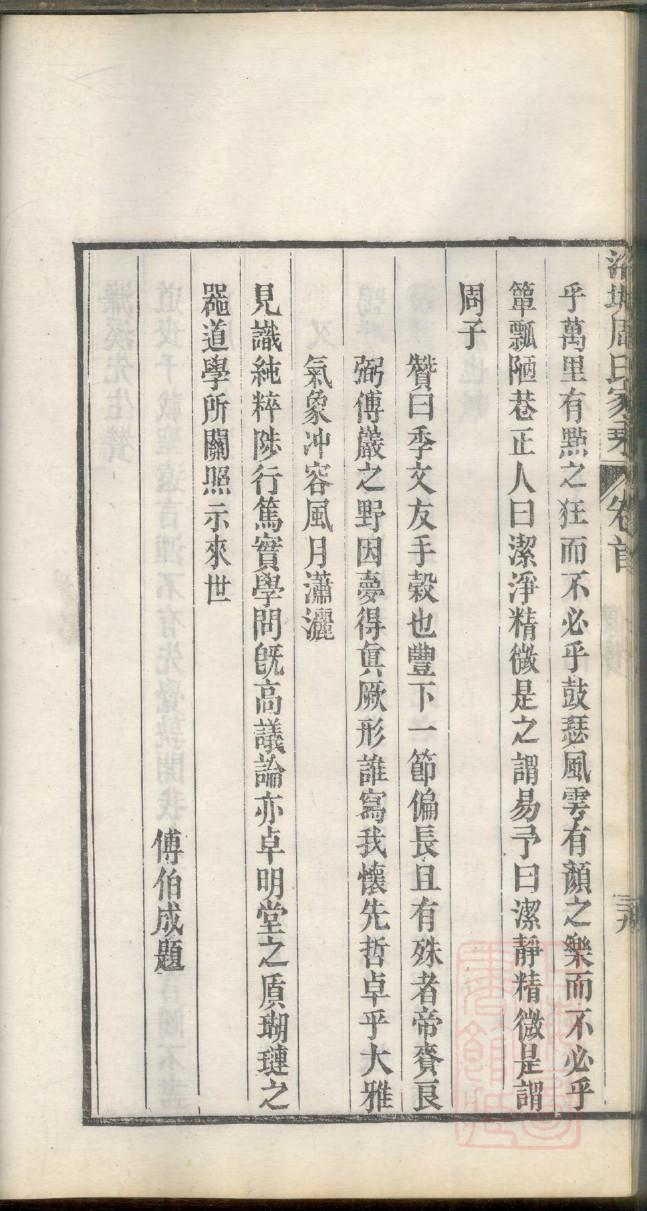 乎萬里有㸃之狂而不必乎鼓瑟風雩有顏之樂而不必乎
簞瓢陋巷正人曰潔淨精微是之謂易予曰潔靜精微是謂
周子
贊曰季文友手穀也豐下一節偏長且有殊者帝賚良
弼傅巖之野因夢得眞厥形誰寫我懷先哲卓乎大雅
氣象冲容風月瀟灑
見識純粹陟行篤實學問旣高議論亦卓明堂之質瑚璉之
器道學所關照示來世
傅伯成題
周氏家
卷首